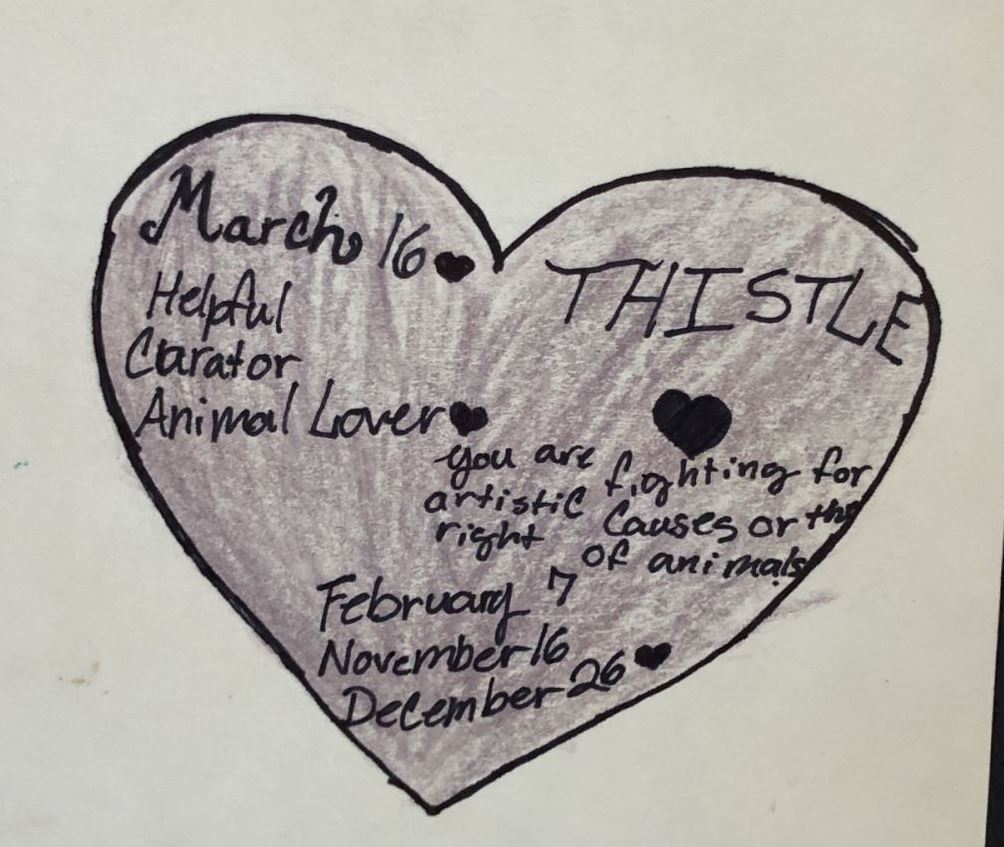 March 16
THISTLE
Helpful
Curator
Animal Lover
you are fighting for
artistic causes or the
right of animals.
February 7
November 16
December 26